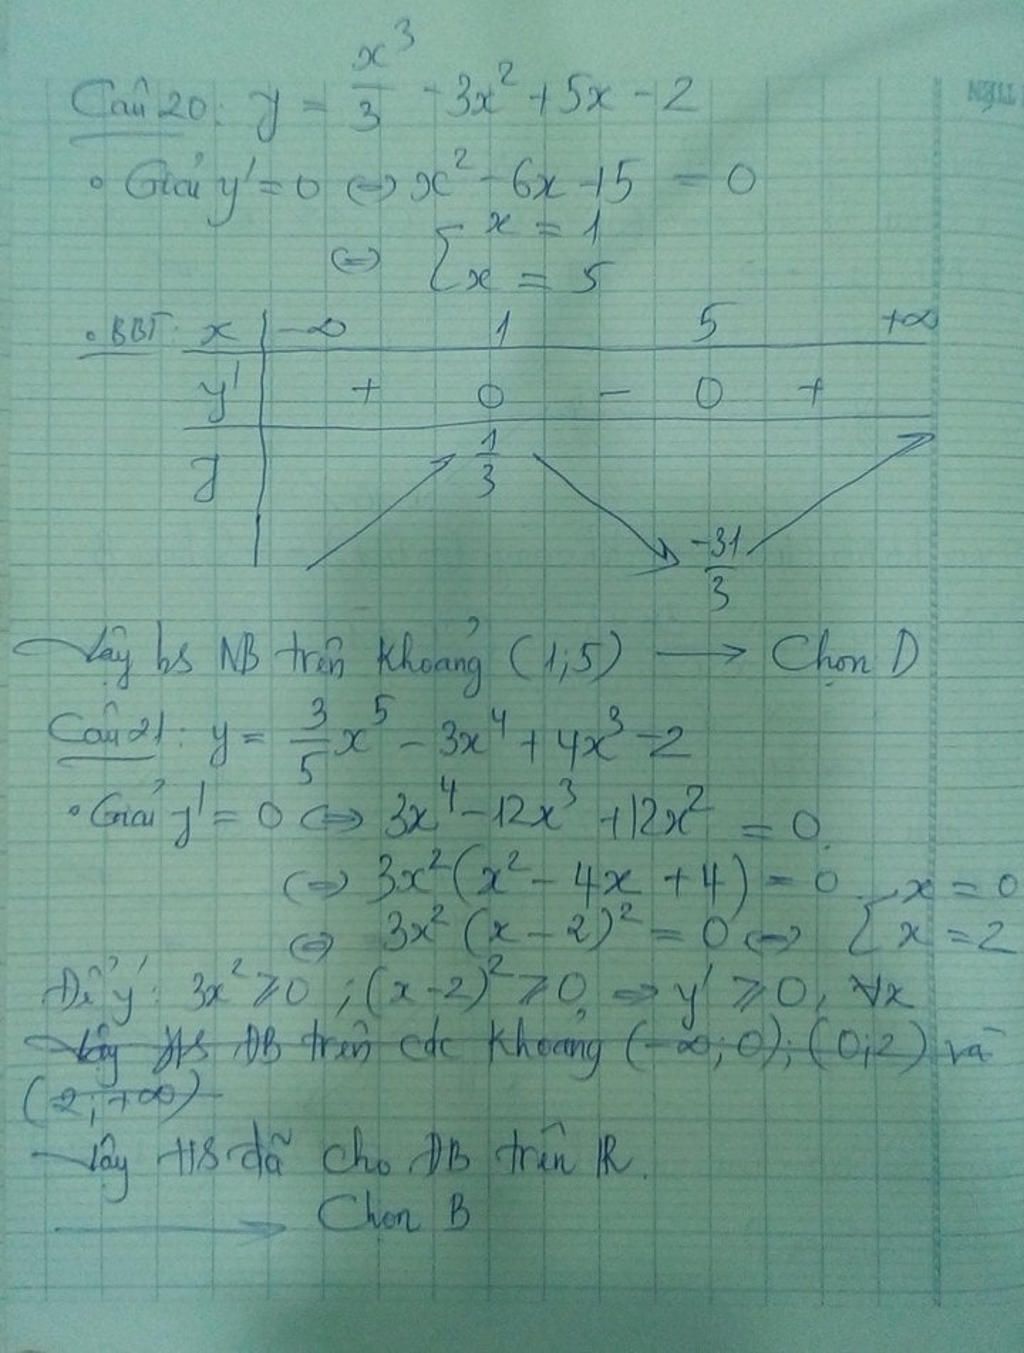 Câu 20: y = x³/3 - 3x² + 5x - 2
• Giải y' = 0 ⇔ x² - 6x + 5 = 0
⇔ [ x = 1
x = 5
• BBT: x -∞ 1 5 +∞
y' + 0 - 0 +
y 1/3
-31/3
Vậy hs NB trên khoảng (1;5) → Chọn D
Câu 21: y = 3/5 x⁵ - 3x⁴ + 4x³ - 2
• Giải y' = 0 ⇔ 3x⁴ - 12x³ + 12x² = 0
⇔ 3x² (x² - 4x + 4) = 0
⇔ 3x² (x - 2)² = 0 ⇔ [ x = 0
x = 2
Để ý: 3x² ≥ 0 ; (x - 2)² ≥ 0 ⇒ y' ≥ 0, ∀x
Vậy HS ĐB trên các khoảng (-∞; 0); (0; 2) và
(2; +∞)
Vậy HS đã cho ĐB trên R.
→ Chọn B